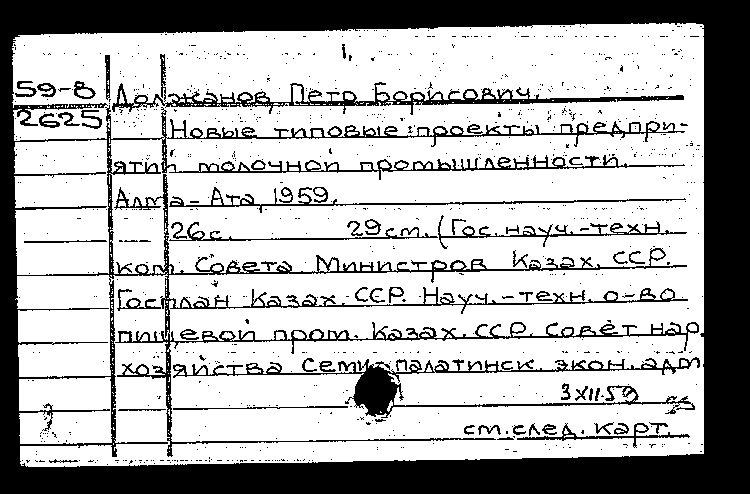 1.
59-8 Должанов, Петр Борисович.
2625 Новые типовые проекты предпри-
ятий молочной промышленности.
Алма-Ата, 1959.
26 с. 29 см. (Гос. науч.-техн.
ком. Совета Министров Казах. ССР.
Госплан Казах. ССР. Науч.-техн. о-во
пищевой пром. Казах. ССР. Совет нар.
хозяйства Семипалатинск. экон. адм.
3 XII 59
см. след. карт.